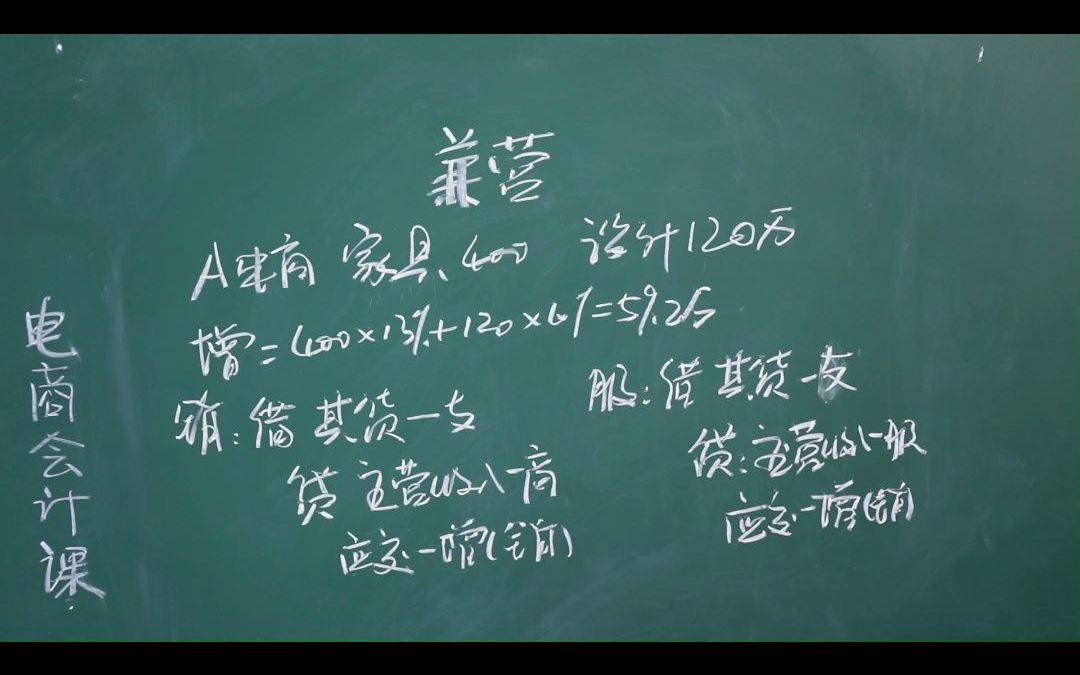 兼营
A电商 家具、400 设计120万
增=400×13%+120×6%=59.2万
销:借 其货一支
贷 主营收入一商
应交一增(销)
服:借 其货一支
贷:主营收入一服
应交一增(销)
电商会计课